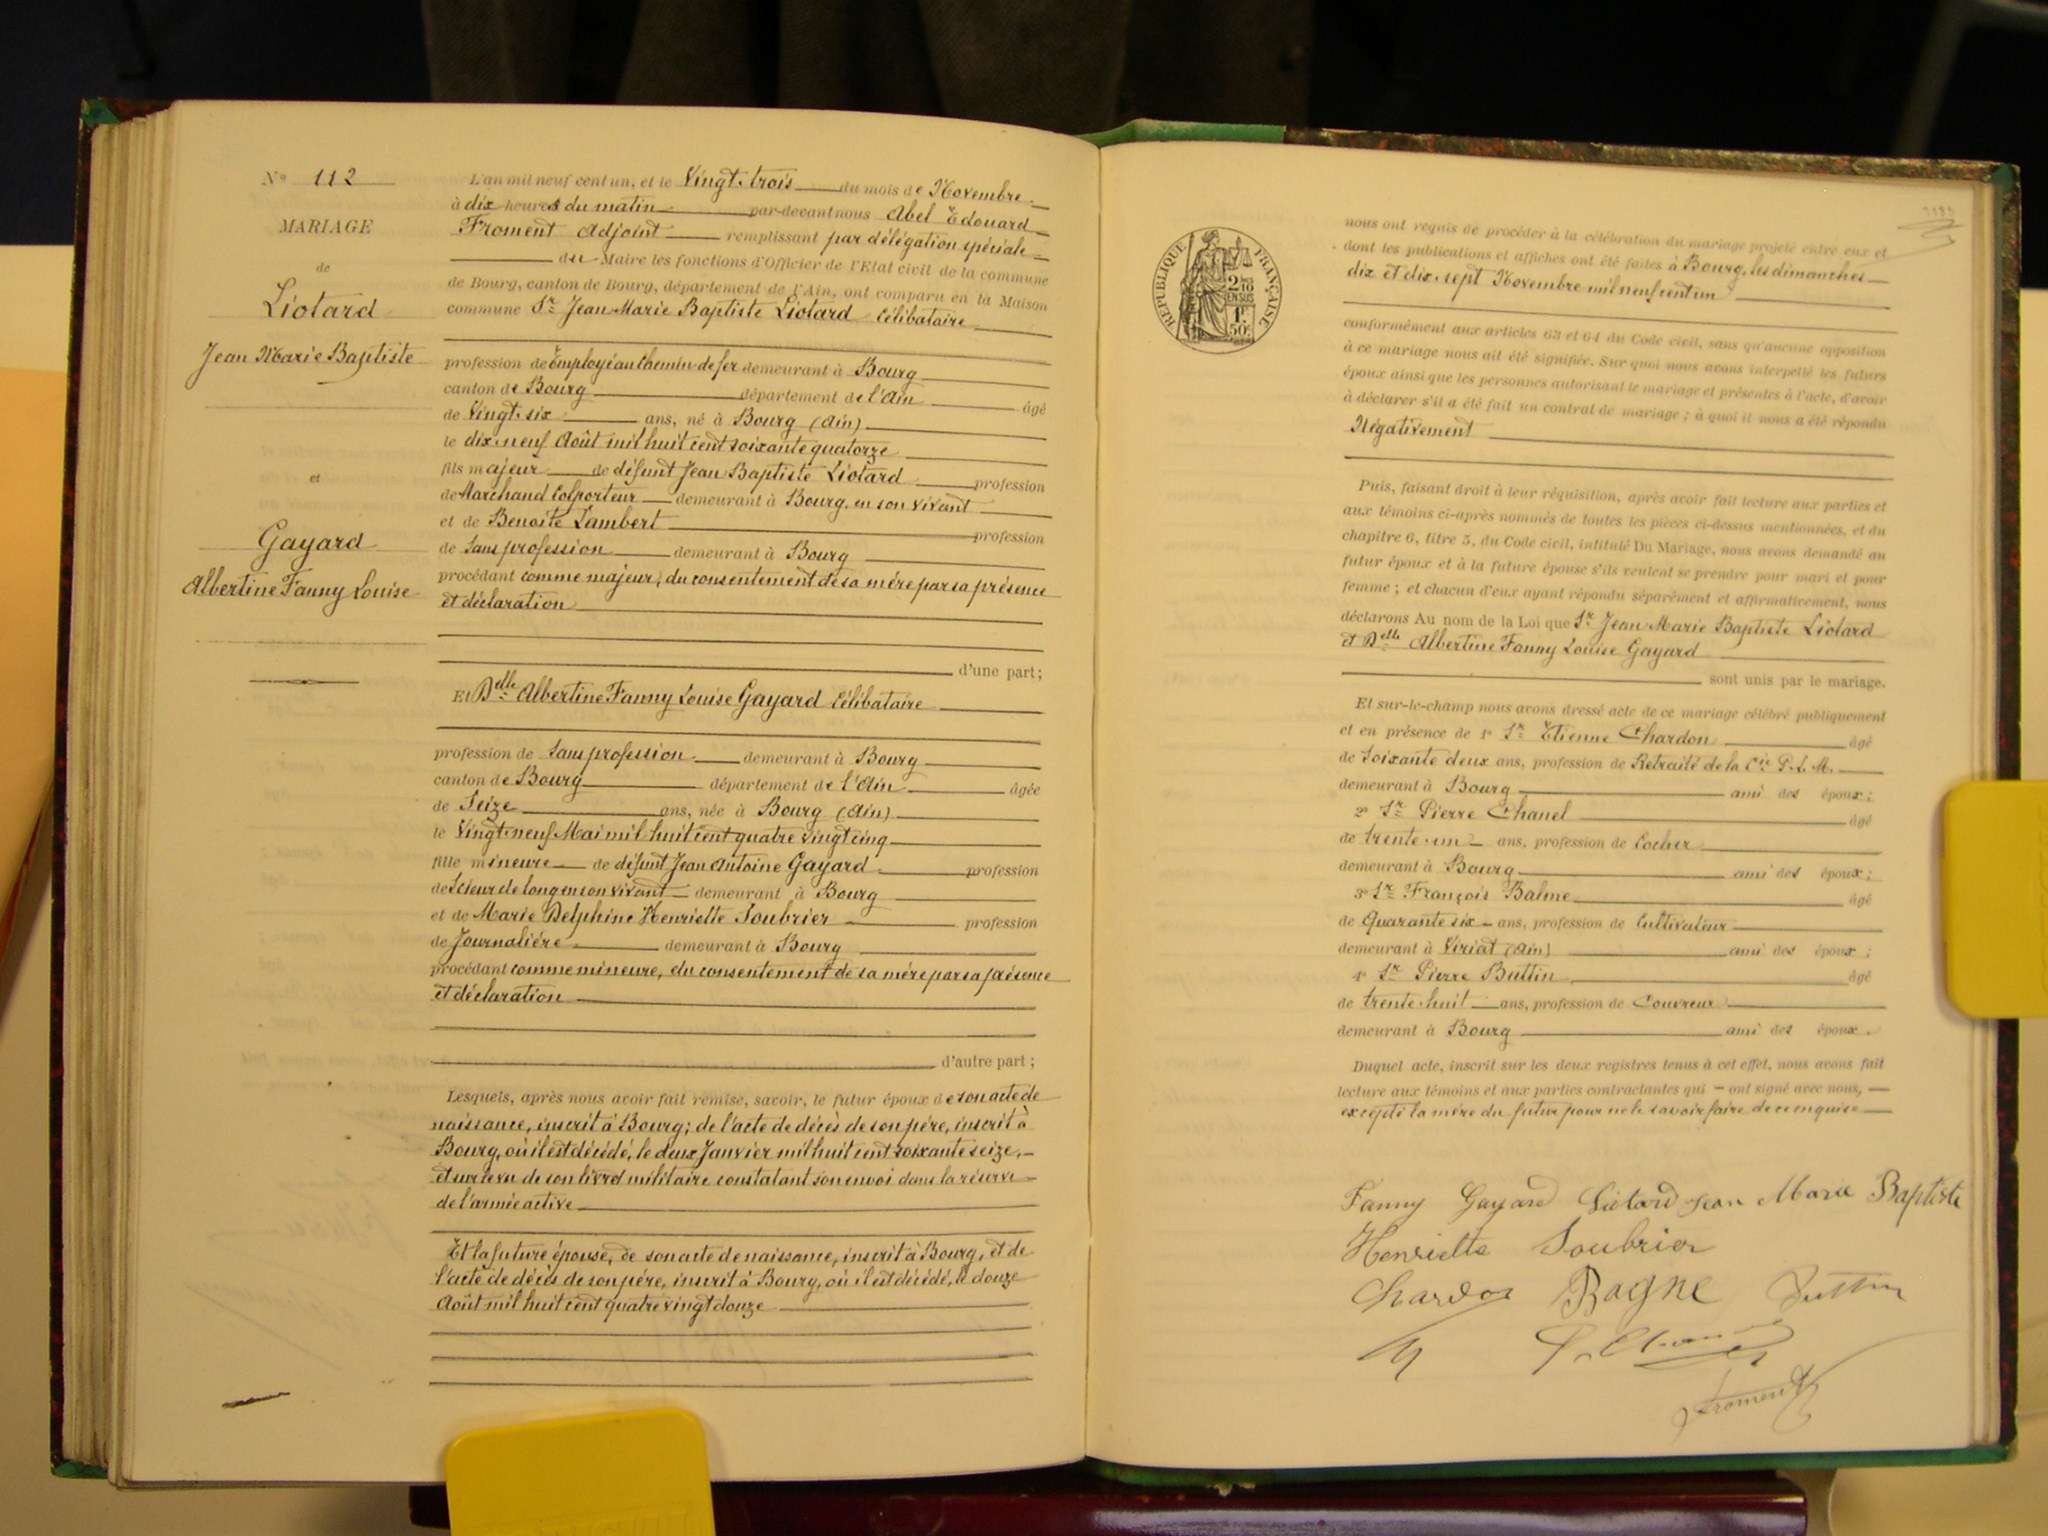 Nº 112
MARIAGE
de
Liotard
Jean Marie Baptiste
et
Gayard
Albertine Fanny Louise
L'an mil neuf cent un, et le Vingt-trois du mois de Novembre
à dix heures du matin par-devant nous Abel Edouard
Froment Adjoint remplissant par délégation spéciale
du Maire les fonctions d'Officier de l'Etat civil de la commune
de Bourg, canton de Bourg, département de l'Ain, ont comparu en la Maison
commune Sr Jean Marie Baptiste Liotard Célibataire
profession de Employé au Chemin de fer demeurant à Bourg
canton de Bourg département de l'Ain âgé
de Vingt-six ans, né à Bourg (Ain)
le dix-neuf Août mil huit cent soixante quatorze
fils majeur de défunt Jean Baptiste Liotard profession
de Marchand Colporteur demeurant à Bourg, en son vivant
et de Benoite Lambert profession
de Sans profession demeurant à Bourg
procédant comme majeur, du consentement de sa mére par sa présence
et déclaration
d'une part;
Et Delle Albertine Fanny Louise Gayard Célibataire
profession de Sans profession demeurant à Bourg
canton de Bourg département de l'Ain âgée
de Seize ans, née à Bourg (Ain)
le Vingt-neuf Mai mil huit cent quatre vingt cinq
fille mineure de défunt Jean Antoine Gayard profession
de Scieur de long en son vivant demeurant à Bourg
et de Marie Delphine Henriette Soubrier profession
de Journalière demeurant à Bourg
procédant comme mineure, du consentement de sa mére par sa présence
et déclaration
d'autre part;
Lesquels, après nous avoir fait remise, savoir, le futur époux de son acte de
naissance, inscrit à Bourg; de l'acte de décès de son père, inscrit à
Bourg, où il est décédé, le deux Janvier mil huit cent soixante seize,
et sur le vu de son livret militaire constatant son envoi dans la réserve
de l'armée active
Et la future épouse, de son acte de naissance, inscrit à Bourg, et de
l'acte de décès de son père, inscrit à Bourg, où il est décédé, le douze
Août mil huit cent quatre vingt douze
REPUBLIQUE FRANÇAISE
2/10
EN SUS
1F
50c
nous ont requis de procéder à la célébration du mariage projeté entre eux et
dont les publications et affiches ont été faites à Bourg, les dimanches
dix et dix-sept Novembre mil neuf cent un
conformément aux articles 63 et 64 du Code civil, sans qu'aucune opposition
à ce mariage nous ait été signifiée. Sur quoi nous avons interpellé les futurs
époux ainsi que les personnes autorisant le mariage et présentes à l'acte, d'avoir
à déclarer s'il a été fait un contrat de mariage; à quoi il nous a été répondu
Négativement
Puis, faisant droit à leur réquisition, après avoir fait lecture aux parties et
aux témoins ci-après nommés de toutes les pièces ci-dessus mentionnées, et du
chapitre 6, titre 5, du Code civil, intitulé Du Mariage, nous avons demandé au
futur époux et à la future épouse s'ils veulent se prendre pour mari et pour
femme; et chacun d'eux ayant répondu séparément et affirmativement, nous
déclarons Au nom de la Loi que Sr Jean Marie Baptiste Liotard
et Delle Albertine Fanny Louise Gayard
sont unis par le mariage.
Et sur-le-champ nous avons dressé acte de ce mariage célébré publiquement
et en présence de 1º Sr Etienne Chardon âgé
de Soixante deux ans, profession de Retraité de la Cie P. L. M.
demeurant à Bourg ami des époux;
2º Sr Pierre Chanel âgé
de trente-un ans, profession de Cocher
demeurant à Bourg ami des époux;
3º Sr François Balme âgé
de Quarante six ans, profession de Cultivateur
demeurant à Viriat (Ain) ami des époux;
4º Sr Pierre Buttin âgé
de trente-huit ans, profession de Couvreur
demeurant à Bourg ami des époux.
Duquel acte, inscrit sur les deux registres tenus à cet effet, nous avons fait
lecture aux témoins et aux parties contractantes qui ont signé avec nous,
excepté la mère du futur pour ne le savoir faire de ce enquise
Fanny Gayard Liotard Jean Marie Baptiste
Henriette Soubrier
Chardon Buttin
Froment